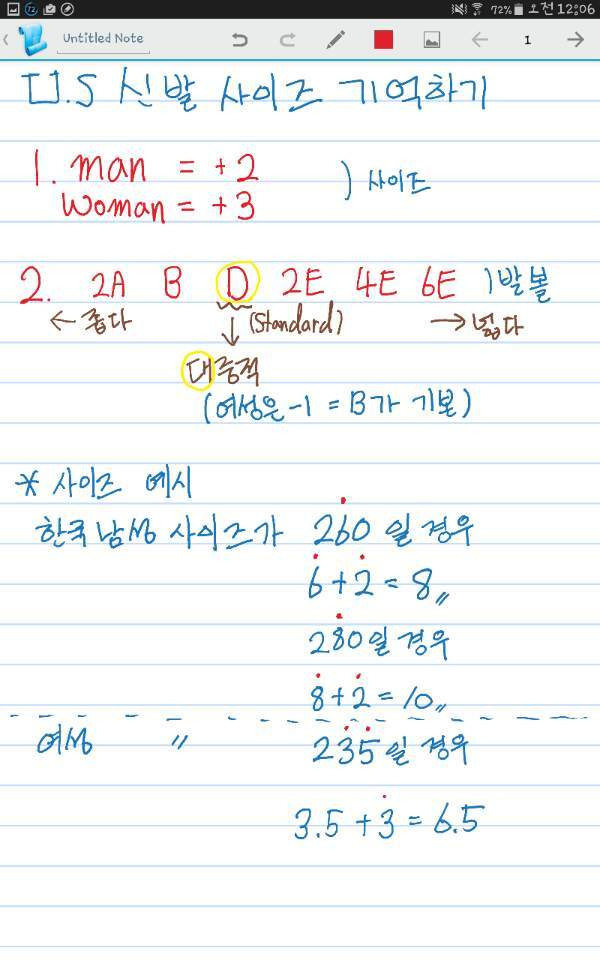 72 72% 오전 12:06
Untitled Note 1
U.S 신발 사이즈 기억하기
1. man = +2
woman = +3
) 사이즈
2. 2A B D 2E 4E 6E ) 발볼
← 좁다 ↓ (standard) → 넓다
대중적
(여성은 -1 = B가 기본)
* 사이즈 예시
한국 남성 사이즈가 260 일 경우
6+2 = 8〃
280 일 경우
8+2 = 10〃
여성 〃 235 일 경우
3.5 + 3 = 6.5